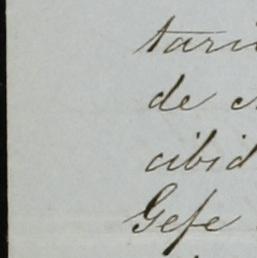 tari
de
cibid
Gefe